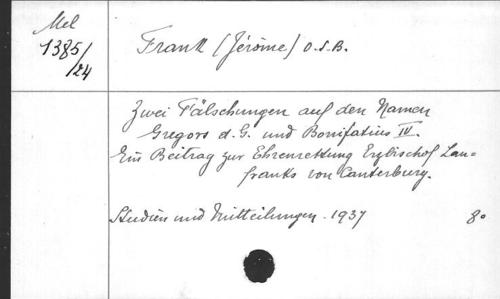 Mel
1385/
/24
Frank (Jérôme) O.S.B.
Zwei Fälschungen auf den Namen
Gregors d. G. und Bonifatius IV.
Ein Beitrag zur Ehrenrettung Erzbischof Lan=
franks von Canterbury.
Studien und Mitteilungen - 1937 8°